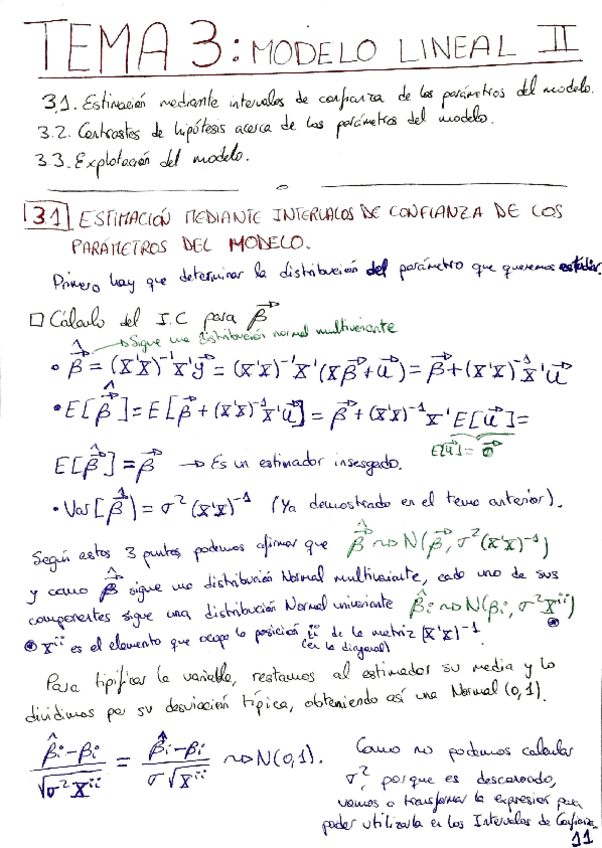 TEMA 3: MODELO LINEAL II
3.1. Estimación mediante intervalos de confianza de los parámetros del modelo.
3.2. Contrastes de hipótesis acerca de los parámetros del modelo.
3.3. Explotación del modelo.
3.1 ESTIMACIÓN MEDIANTE INTERVALOS DE CONFIANZA DE LOS
PARÁMETROS DEL MODELO.
Primero hay que determinar la distribución del parámetro que queremos estudiar.
□ Cálculo del I.C para β⃗
→ Sigue una distribución normal multivariante
• β̂⃗ = (X'X)⁻¹X'y⃗ = (X'X)⁻¹X'(Xβ⃗+u⃗) = β⃗+(X'X)⁻¹X'u⃗
• E[β̂⃗] = E[β⃗+(X'X)⁻¹X'u⃗] = β⃗+(X'X)⁻¹X'E[u⃗] =
E[u⃗] = 0⃗
E[β̂⃗] = β⃗ → Es un estimador insesgado.
• Var[β̂⃗] = σ²(X'X)⁻¹ (Ya demostrado en el tema anterior).
Según estos 3 puntos podemos afirmar que β̂⃗ ~> N(β⃗, σ²(X'X)⁻¹)
y como β̂⃗ sigue una distribución Normal multivariante, cada uno de sus
componentes sigue una distribución Normal univariante β̂i ~> N(βi, σ²Xⁱⁱ)
⊛ Xⁱⁱ es el elemento que ocupa la posición ii de la matriz (X'X)⁻¹.
(en la diagonal)
Para tipificar la variable, restamos al estimador su media y lo
dividimos por su desviación típica, obteniendo así una Normal (0,1).
(β̂i-βi)/√(σ²Xⁱⁱ) = (β̂i-βi)/(σ√(Xⁱⁱ)) ~> N(0,1).
Como no podemos calcular
σ², porque es desconocido,
vamos a transformar la expresión para
poder utilizarla en los Intervalos de Confianza.
11